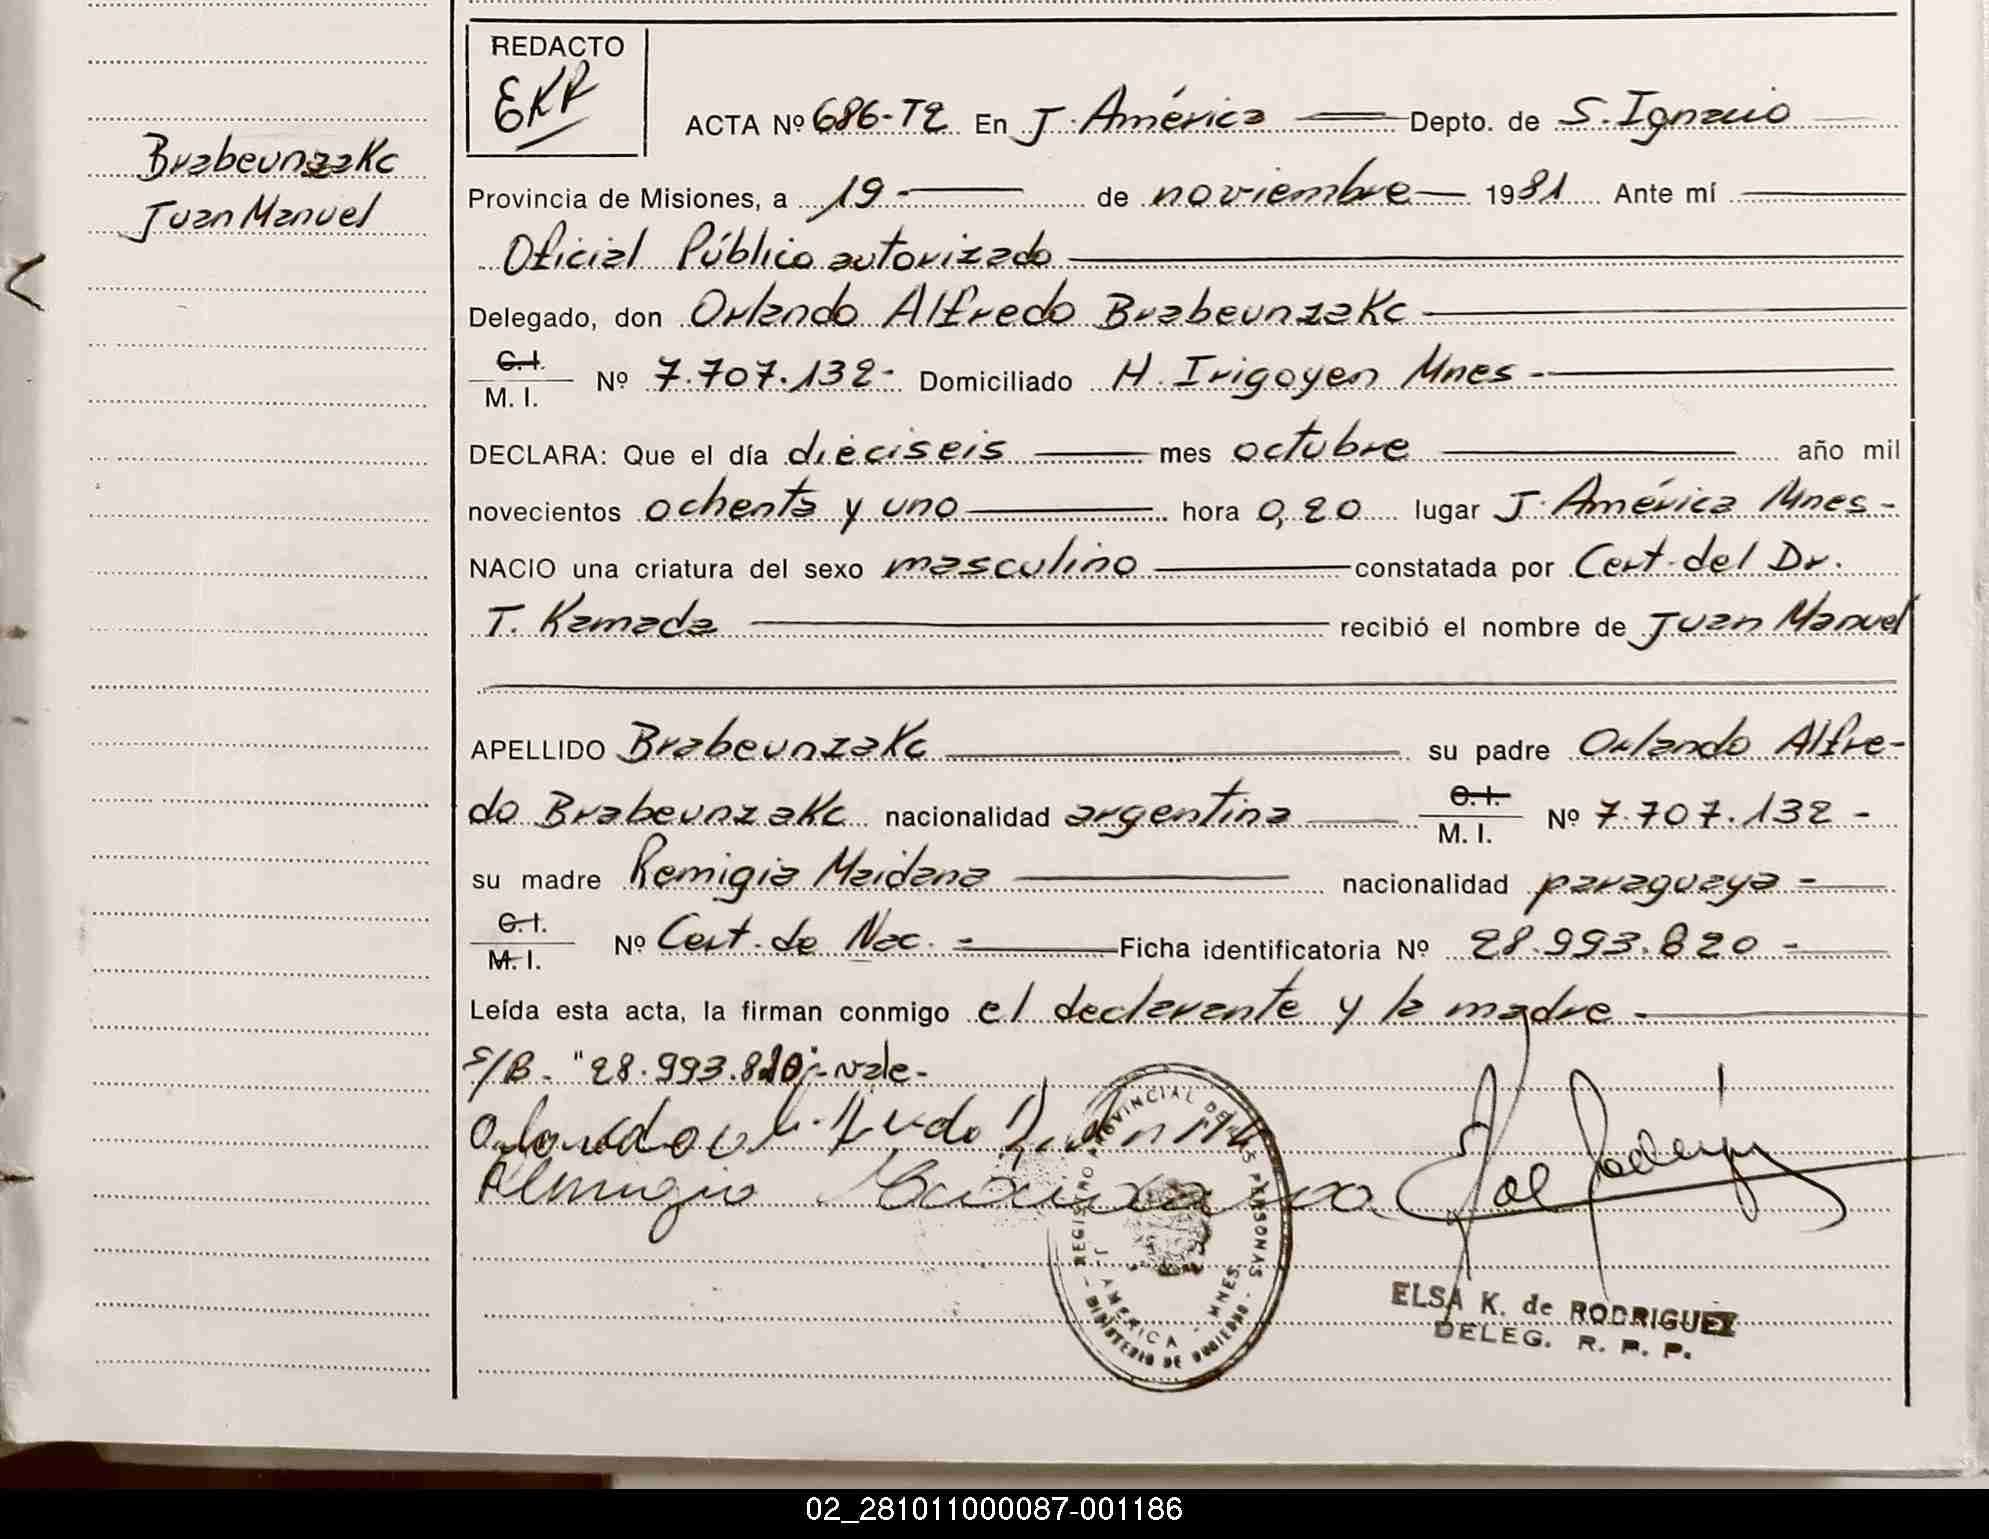 REDACTO
EKR
Brabeunzakc
Juan Manuel
ACTA Nº 686-T2 En J. América Depto. de S. Ignacio
Provincia de Misiones, a 19- de noviembre 1981 Ante mí
Oficial Público autorizado
Delegado, don Orlando Alfredo Brabeunzakc
C.I.
M.I. Nº 7.707.132- Domiciliado H. Irigoyen Mnes -
DECLARA: Que el día dieciseis mes octubre año mil
novecientos ochenta y uno hora 0,20 lugar J. América Mnes-
NACIO una criatura del sexo masculino constatada por Cert. del Dr.
T. Kamada recibió el nombre de Juan Manuel
APELLIDO Brabeunzakc su padre Orlando Alfre-
do Brabeunzakc nacionalidad argentina C.I. M.I. Nº 7.707.132-
su madre Remigia Maidana nacionalidad paraguaya -
C.I.
M.I. Nº Cert. de Nac. - Ficha identificatoria Nº 28.993.820-
Leída esta acta, la firman conmigo el declarante y la madre -
S/B. "28.993.820"- vale-
REGISTRO PROVINCIAL DE LAS PERSONAS
J. AMERICA - MNES.
MINISTERIO DE GOBIERNO
ELSA K. de RODRIGUEZ
DELEG. R. P. P.
02_281011000087-001186